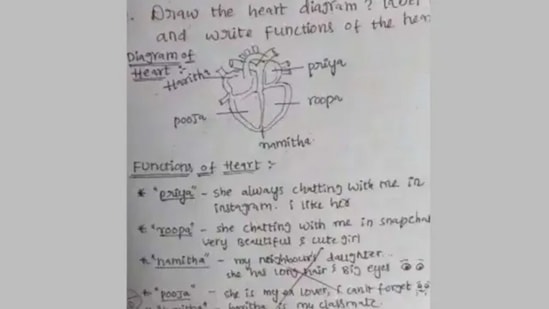 Draw the heart diagram? label
and write functions of the hear
Diagram of
Heart :-
Haritha
priya
roopa
pooja
namitha
Functions of Heart :-
* "priya" - she always chatting with me in
instagram. i like her
* "roopa" - she chatting with me in snapchat
very Beautiful & cute girl
* "namitha" - my neighbour's daughter.
she has long hair & Big eyes
* "pooja" - she is my ex lover, i can't forget
haritha is my classmate